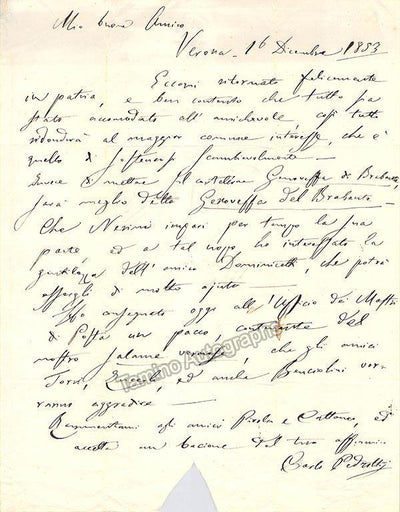 Mio buono Amico
Verona - 16 Dicembre 1853
Eccomi ritornato felicemente
in patria, e ben contento che tutto sia
stato accomodato all'amichevole, così tutto
ridonderà al maggior comune interesse, che è
quello di sostenersi scambievolmente -
Invece di mettere il cartellone Genoveffa di Brabante,
sarà meglio dirla Genoveffa del Brabante.
Che Nerini impari per tempo la sua
parte, ed a tal uopo ho interessato la
gentilezza dell'amico Dominiceti, che potrà
essergli di molto ajuto.
Ho consegnato oggi all'Ufficio dei Mastri
di Posta un pacco, contenente del
nostro salame, che gli amici
Torri, ed anche vor-
ranno aggradire -
Rammentami agli amici Pirola e Cattaneo, ed
accetta un bacione dal tuo affimo.
Carlo Pedrotti
Tamino Autographs